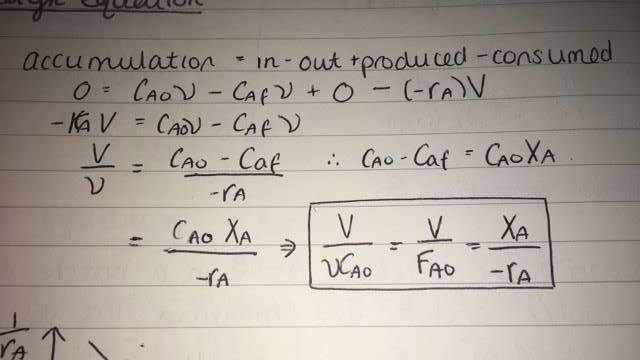 design equation
accumulation = in-out+produced-consumed
0 = CAOν - CAfν + 0 - (-rA)V
-rAV = CAOν - CAfν
V/ν = CAO - CAf/-rA ∴ CAO-CAf = CAOXA
= CAO XA/-rA ⇒ V/νCAO = V/FAO = XA/-rA
1/rA ↑